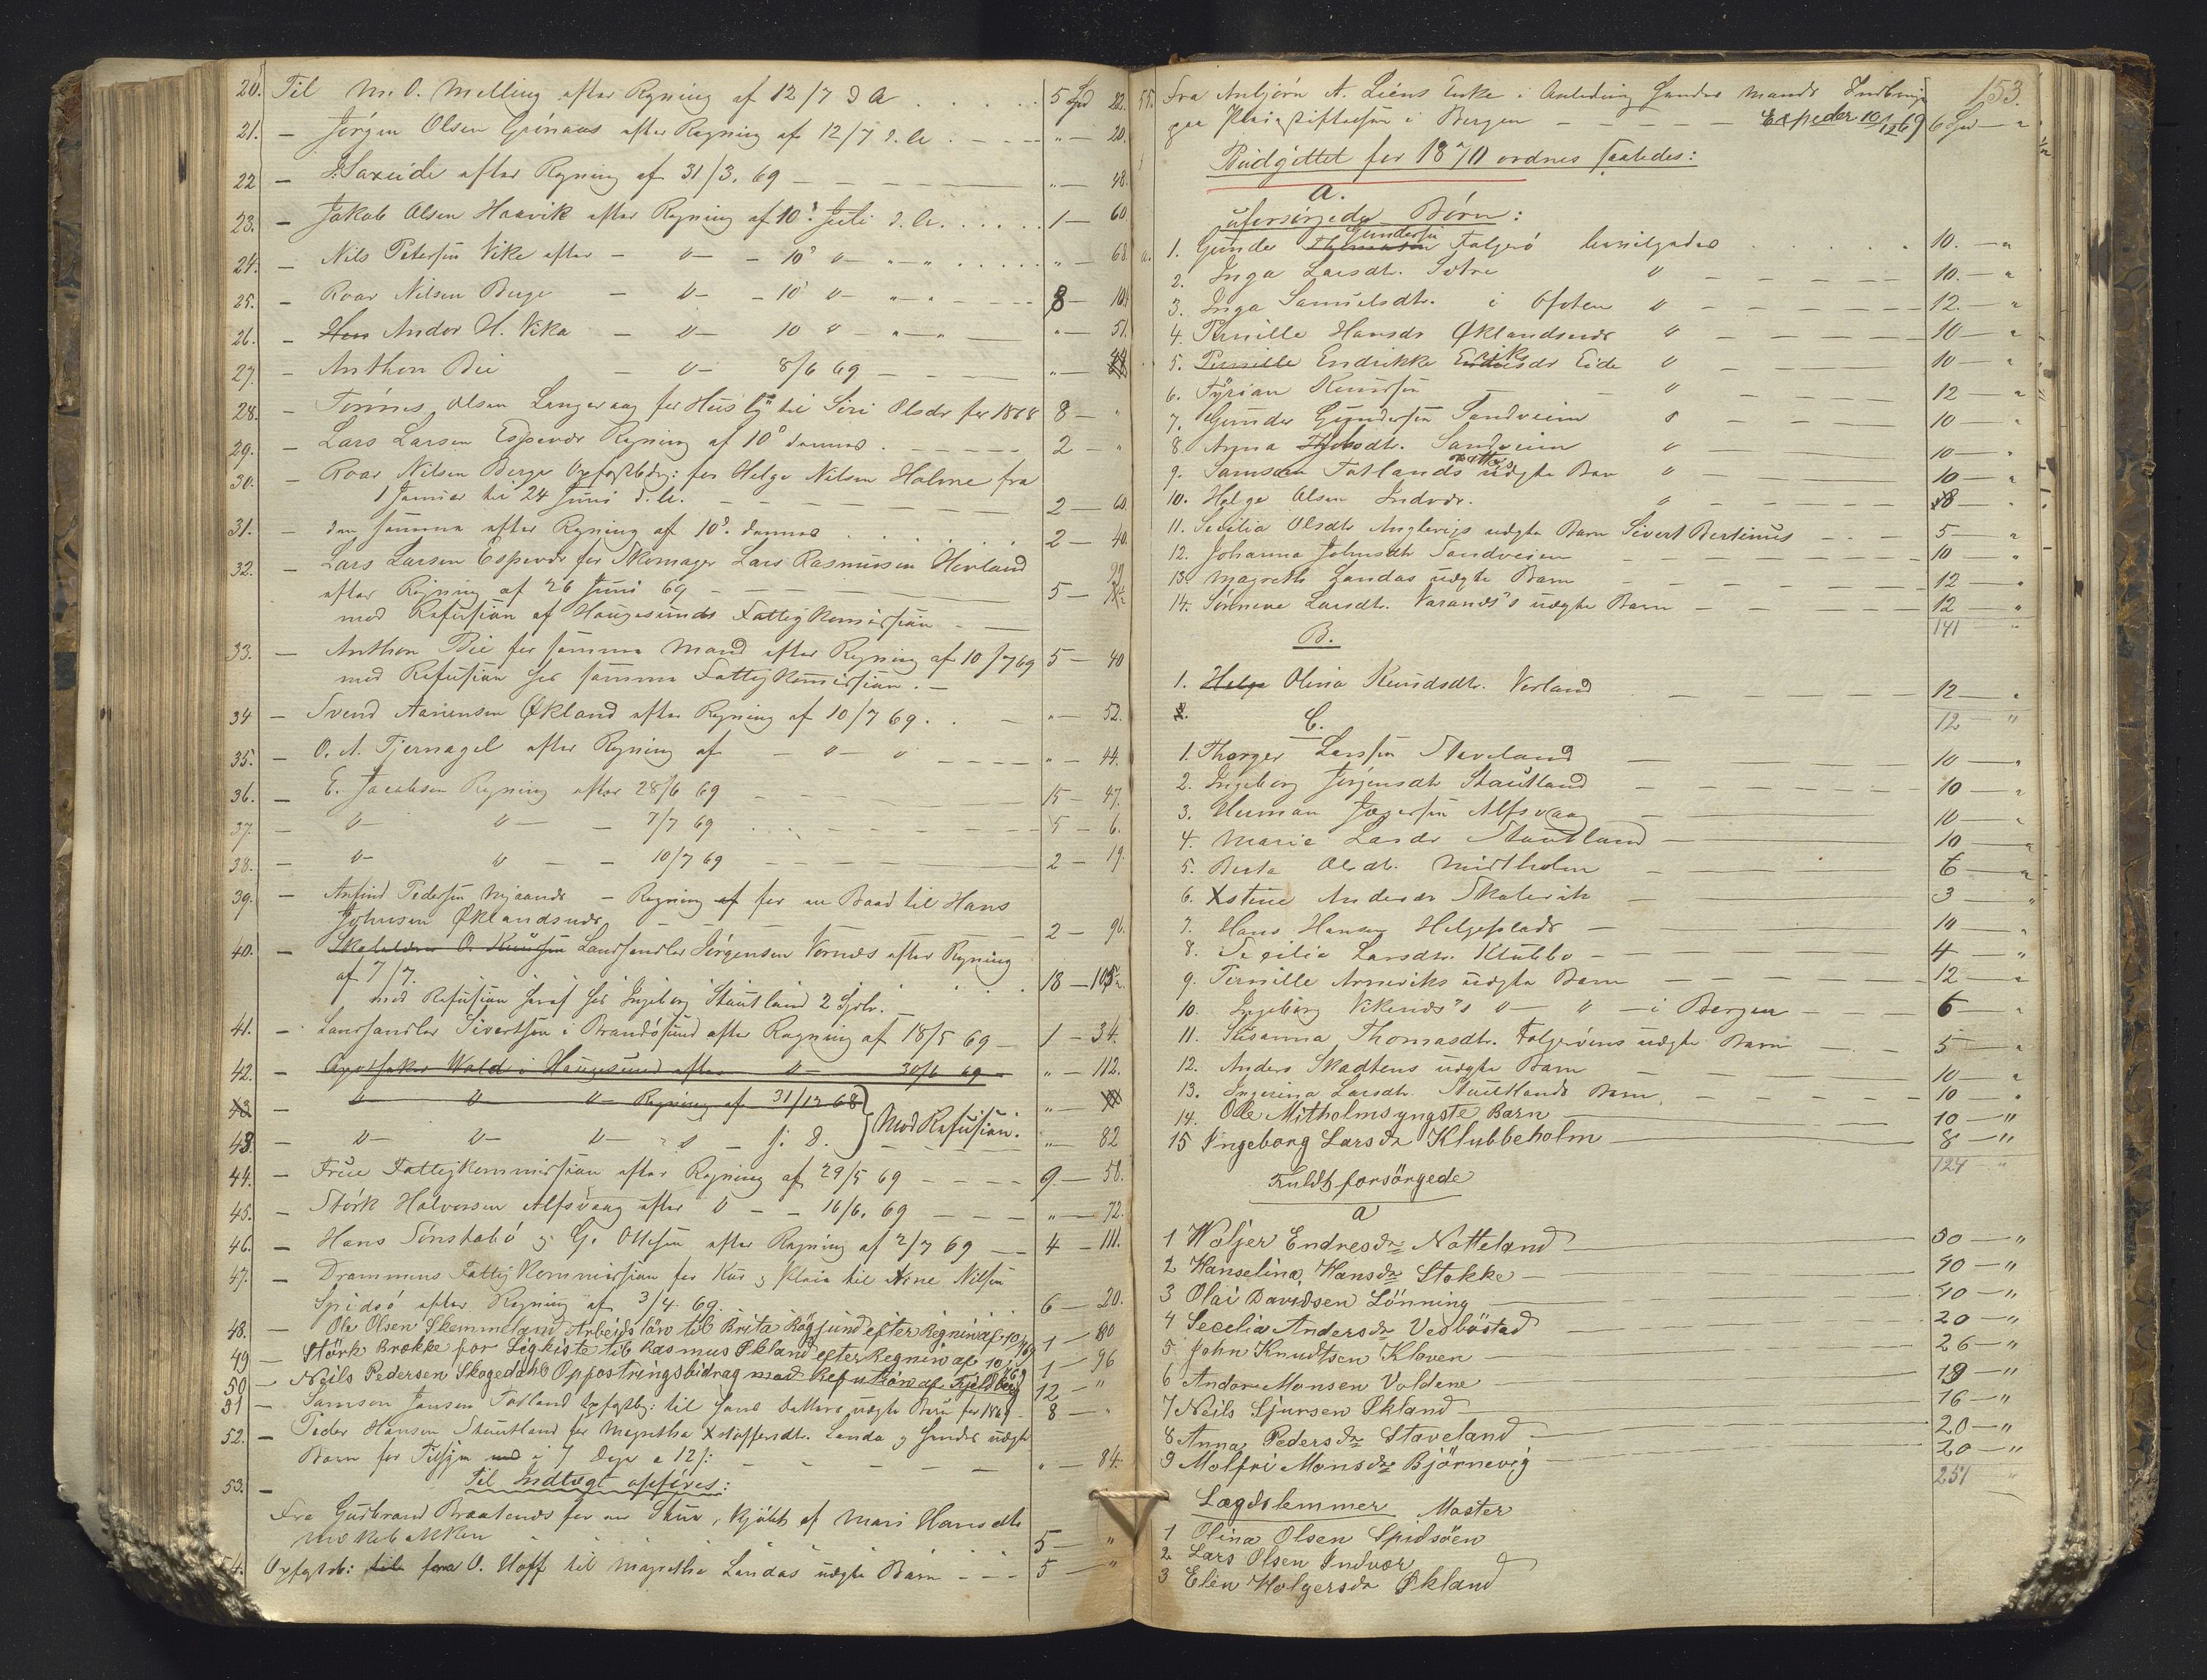 20. Til M. O. Melling efter Regning af 12/7 d A . . . . . 5 Spd 22.
21. — Jørgen Olsen Grönaas efter Regning af 12/7 d. A. . - - - " — 20.
22 — Saxeide efter Regning af 31/3. 69 — — — " — 48.
23. — Jakob Olsen Haavik efter Regning af 10' Juli d. A. . . . . . 1 — 60
24. — Nils Petersen Vike efter — " — - 10' " " — " . . . . . " — 68.
25. — Roar Nilsen Berge — " — - 10' " " — " - - - 8 — 10.
26. — Andor H. Vika — " — 10 " " — " — " — 51.
27. — Anthon Bie — " — 8/6 69 — — — " —
28. — Tönnes Olsen Langevaag for Husly til Siri Olsdr for 1868 8 — "
29. — Lars Larsen Espevær Regning af 10' dennes . - - - 2 — "
30. — Roar Nilsen Berge Opfostbdrg: for Helge Nilsen Holme fra
1 Januar til 24 Juni d. A. — — — 2 — 60.
31. — den samme efter Regning af 10' dennes . . . . . 2 — 40.
32. — Lars Larsen Espevær for Skomager Lars Rasmussen Hovland
efter Regning af 26 Juni 69 — — — 5 —
mod Refusion af Haugesunds Fattigkommission - —
33. — Anthon Bie for samme Mand efter Regning af 10/7 69 5 — 40
mod Refusion hos samme Fattigkommission. —
34 — Svend Aanensen Økland efter Regning af 10/7 69 . . — " — 52.
35. — O. A. Tjernagel efter Regning af — " — " — — — " — 44.
36. — E. Jacobsen Regning efter 28/6 69 — — — 15 — 47.
37. — " — " — — 7/7 69 . . - - - 5 — 6.
38. — " — " — — 10/7 69 — — — 2 — 19.
39. — Anfind Pedersen Myaands — Regning af for en Baad til Hans
Johnsen Øklandsnæs — — — 2 — 96.
40. — Landhandler Jørgensen Vornæs efter Regning
af 7/7. . . . 18 — 105
mod Refusion heraf hos Ingeborg Stautland 2 Spdr.
41. — Landhandler Sivertsen i Brandösund efter Regning af 18/5 69 — 1 — 34.
42. — Apotheker Wold i Haugesund efter " — 30/6 69 — " — 112.
43 — " " " — Regning af 31/12 68 " —
43. — " — " — " — " — f: d. Mod Refusion. " — 82
44. — Frue Fattigkommission efter Regning af 29/5 69 — — — 9 — 58.
45. — Störk Halvorsen Alfsvaag efter " — — 16/6. 69 — — — " — 72.
46. — Hans Sönstabö og G. Ottesen efter Regning af 2/7 69 — 4 — 111.
47. — Drammens Fattigkommission for Kur og Pleie til Arne Nilsen
Spidsö efter Regning af 3/4. 69. . . . 6 — 20.
48. — Ole Olsen Skemmeland Arbeidslön til Brita Rögsund efter Regnin af 10/7 69 1 — 80
49 — Störk Brække for Ligkiste til Rasmus Økland efter Regnin af 10/7 69 1 — 96
50 — Neils Pedersen Skogedahl Oppostringsbidrag mod Refution af Fjeldberg 12 — "
51 — Samson Jansen Totland Opfostbg: til hans Datters uægte Barn for 1869 8 — "
52. — Peder Hansen Stautland for Magretha Xstoffersdtr. Landa og hendes uægte
Barn for Tilsyn med i 7 Dage a 12 f: — — — " — 84.
53. — Til Indtægt opføres:
Fra Gudbrand Braatends for en Stue, kjöbt af Mari Hansdtr
5 — "
54. Opfostrb: til fra O. Hoff til Magretha Landas uægte Barn — — — 5 — "
153.
55. Fra Anbjörn A. Liens Enke i Anledning hendes Mands Indlæggelse
paa Pleiestiftelsen i Bergen — — — Expeder 10/12 69 6 Spd — "
Budgettet for 1870 ordnes saaledes:
a.
uforsørgede Börn:
1. Gunder Gundersen Folgerö bevilgedes . . . . 10. — "
2. Inga Larsdtr. Sötre " — — — 10. — "
3. Inga Samuelsdtr. i Ofoten " — — — 12. — "
4. Pernille Hansdr Øklandsnæs " — — — 10 — "
5. Pernille Endrikke Eriksdr Eide " — — — 10 — "
6. Tyrian Knudsen — " — — 12 — "
7. Gunder Gundersen Sandveien " — — — 10 — "
8. Anna Sandveien " — — — 10 — "
9. Samson Totlands Datters uægte Barn " — — — 10 — "
10. Helge Olsen Indvær. " — — — 8 — "
11. Secilia Olsdtr Anglevigs uægte Barn Sivert Bertinus — — — 5 — "
12. Johanna Johnsdtr Sandveien — — — 10 — "
13. Magreth Landas uægte Barn — — — 12 — "
14. Sönneve Larsdtr. Varands's uægte Barn — — — 12 — "
141 "
B.
1. Helge Olina Knudsdtr. Vorland — — — 12 — "
2.
12 — "
C.
1. Thorger Larsen Staveland — — — 10 — "
2. Ingeborg Jörgensdtr Stautland — — — 10 — "
3. Human Jægersen Alfsvaag — — — 10 — "
4. Marie Larsdr Stautland — — — 10 — "
5. Berta Olsdt. Midtholm — — — 6 — "
6. Xstine Andersdr Skatevik — — — 3 — "
7. Hans Hansen Helgeplads — — — 10 — "
8. Secilia Larsdtr. Klubbo — — — 4 — "
9. Pernille Arneviks uægte Barn — — — 12 — "
10. Ingeborg Vikends's " — " — i Bergen — — — 6 — "
11. Susanna Thomasdtr. Folgeröens uægte Barn — — — 5 — "
12. Anders Skadtens uægte Barn — — — 10 — "
13. Ingerina Larsdtr. Stautlands Barn, — — — 10 — "
14. Ole Mitholms yngste Barn — — — 10 — "
15 Ingeborg Larsdr Klubbeholm — — — 8 — "
124 "
Fuldt forsörgede
a
1 Woljer Endresdr Natteland — 30 — "
2 Hanselina Hansdr Stokke — 40 — "
3 Olai Davidsen Lönning — 40 — "
4 Secelia Andersdr Vedböstad — 20 — "
5. John Knudtsen Kloven — 26 — "
6 Andor Monsen Valdene — 19 — "
7 Neils Sjursen Økland — 16 — "
8 Anna Pedersdr Staveland — 20 — "
9 Malfri Monsdr Björnevig — 20 — "
251 "
Lægdslemmer Master
1 Olina Olsen Spidsöen
2 Lars Olsen Indvær
3 Elen Holgersdr Økland